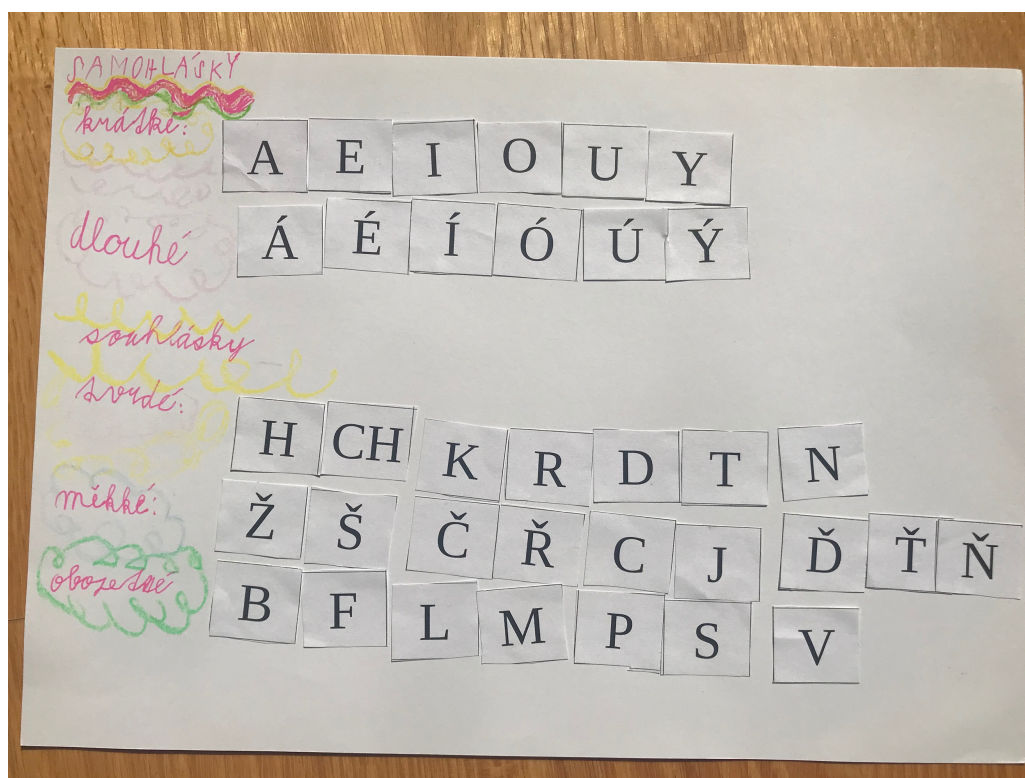 SAMOHLÁSKY
krátké: A E I O U Y
dlouhé Á É Í Ó Ú Ý
souhlásky
tvrdé: H CH K R D T N
měkké: Ž Š Č Ř C J Ď Ť Ň
obojetné B F L M P S V